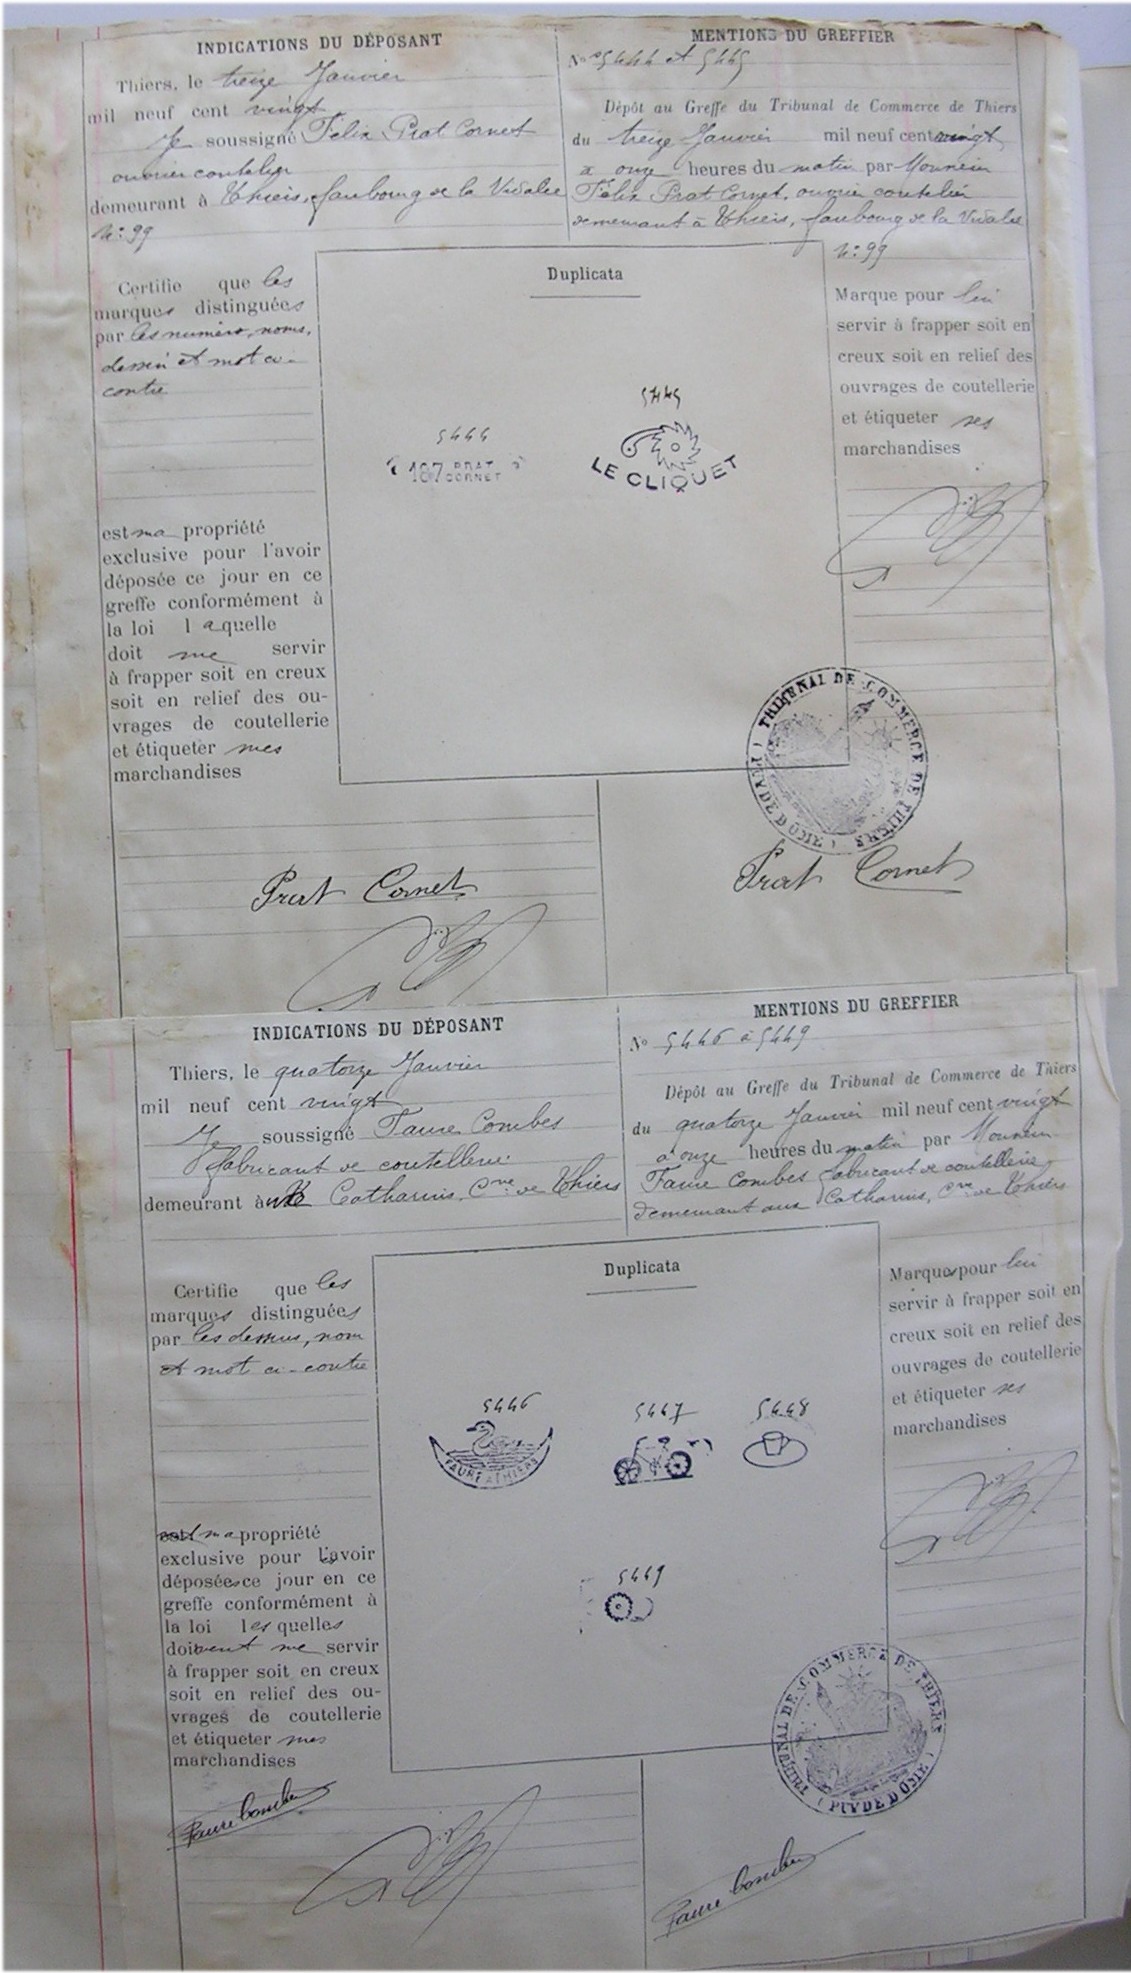 INDICATIONS DU DÉPOSANT
Thiers, le treize Janvier
mil neuf cent vingt
Je soussigné Félix Prat Cornet
ouvrier coutelier
demeurant à Thiers, faubourg de la Vidalie
N° 99
MENTIONS DU GREFFIER
Nos 5444 et 5445
Dépôt au Greffe du Tribunal de Commerce de Thiers
du treize Janvier mil neuf cent vingt
à onze heures du matin par Monsieur
Félix Prat Cornet, ouvrier coutelier
demeurant à Thiers, faubourg de la Vidalie
N° 99
Certifie que les
marques distinguées
par les numéro, noms,
dessin et mot ci-
contre
est ma propriété
exclusive pour l'avoir
déposée ce jour en ce
greffe conformément à
la loi laquelle
doit me servir
à frapper soit en creux
soit en relief des ou-
vrages de coutellerie
et étiqueter mes
marchandises
Duplicata
5444
187 PRAT
CORNET
5445
LE CLIQUET
Marque pour lui
servir à frapper soit en
creux soit en relief des
ouvrages de coutellerie
et étiqueter ses
marchandises
TRIBUNAL DE COMMERCE DE THIERS
(PUY DE DOME)
Prat Cornet
Prat Cornet
INDICATIONS DU DÉPOSANT
Thiers, le quatorze Janvier
mil neuf cent vingt
Je soussigné Faure Combes
fabricant de coutellerie
demeurant à Catharins, Cne de Thiers
MENTIONS DU GREFFIER
No 5446 à 5449
Dépôt au Greffe du Tribunal de Commerce de Thiers
du quatorze Janvier mil neuf cent vingt
à onze heures du matin par Monsieur
Faure Combes fabricant de coutellerie
demeurant aux Catharins, Cne de Thiers
Certifie que les
marques distinguées
par les dessins, nom
et mot ci-contre
ma propriété
exclusive pour les avoir
déposées ce jour en ce
greffe conformément à
la loi lesquelles
doivent me servir
à frapper soit en creux
soit en relief des ou-
vrages de coutellerie
et étiqueter mes
marchandises
Duplicata
5446
FAURE A THIERS
5447
5448
5449
Marques pour lui
servir à frapper soit en
creux soit en relief des
ouvrages de coutellerie
et étiqueter ses
marchandises
TRIBUNAL DE COMMERCE DE THIERS
(PUY DE DOME)
Faure Combes
Faure Combes